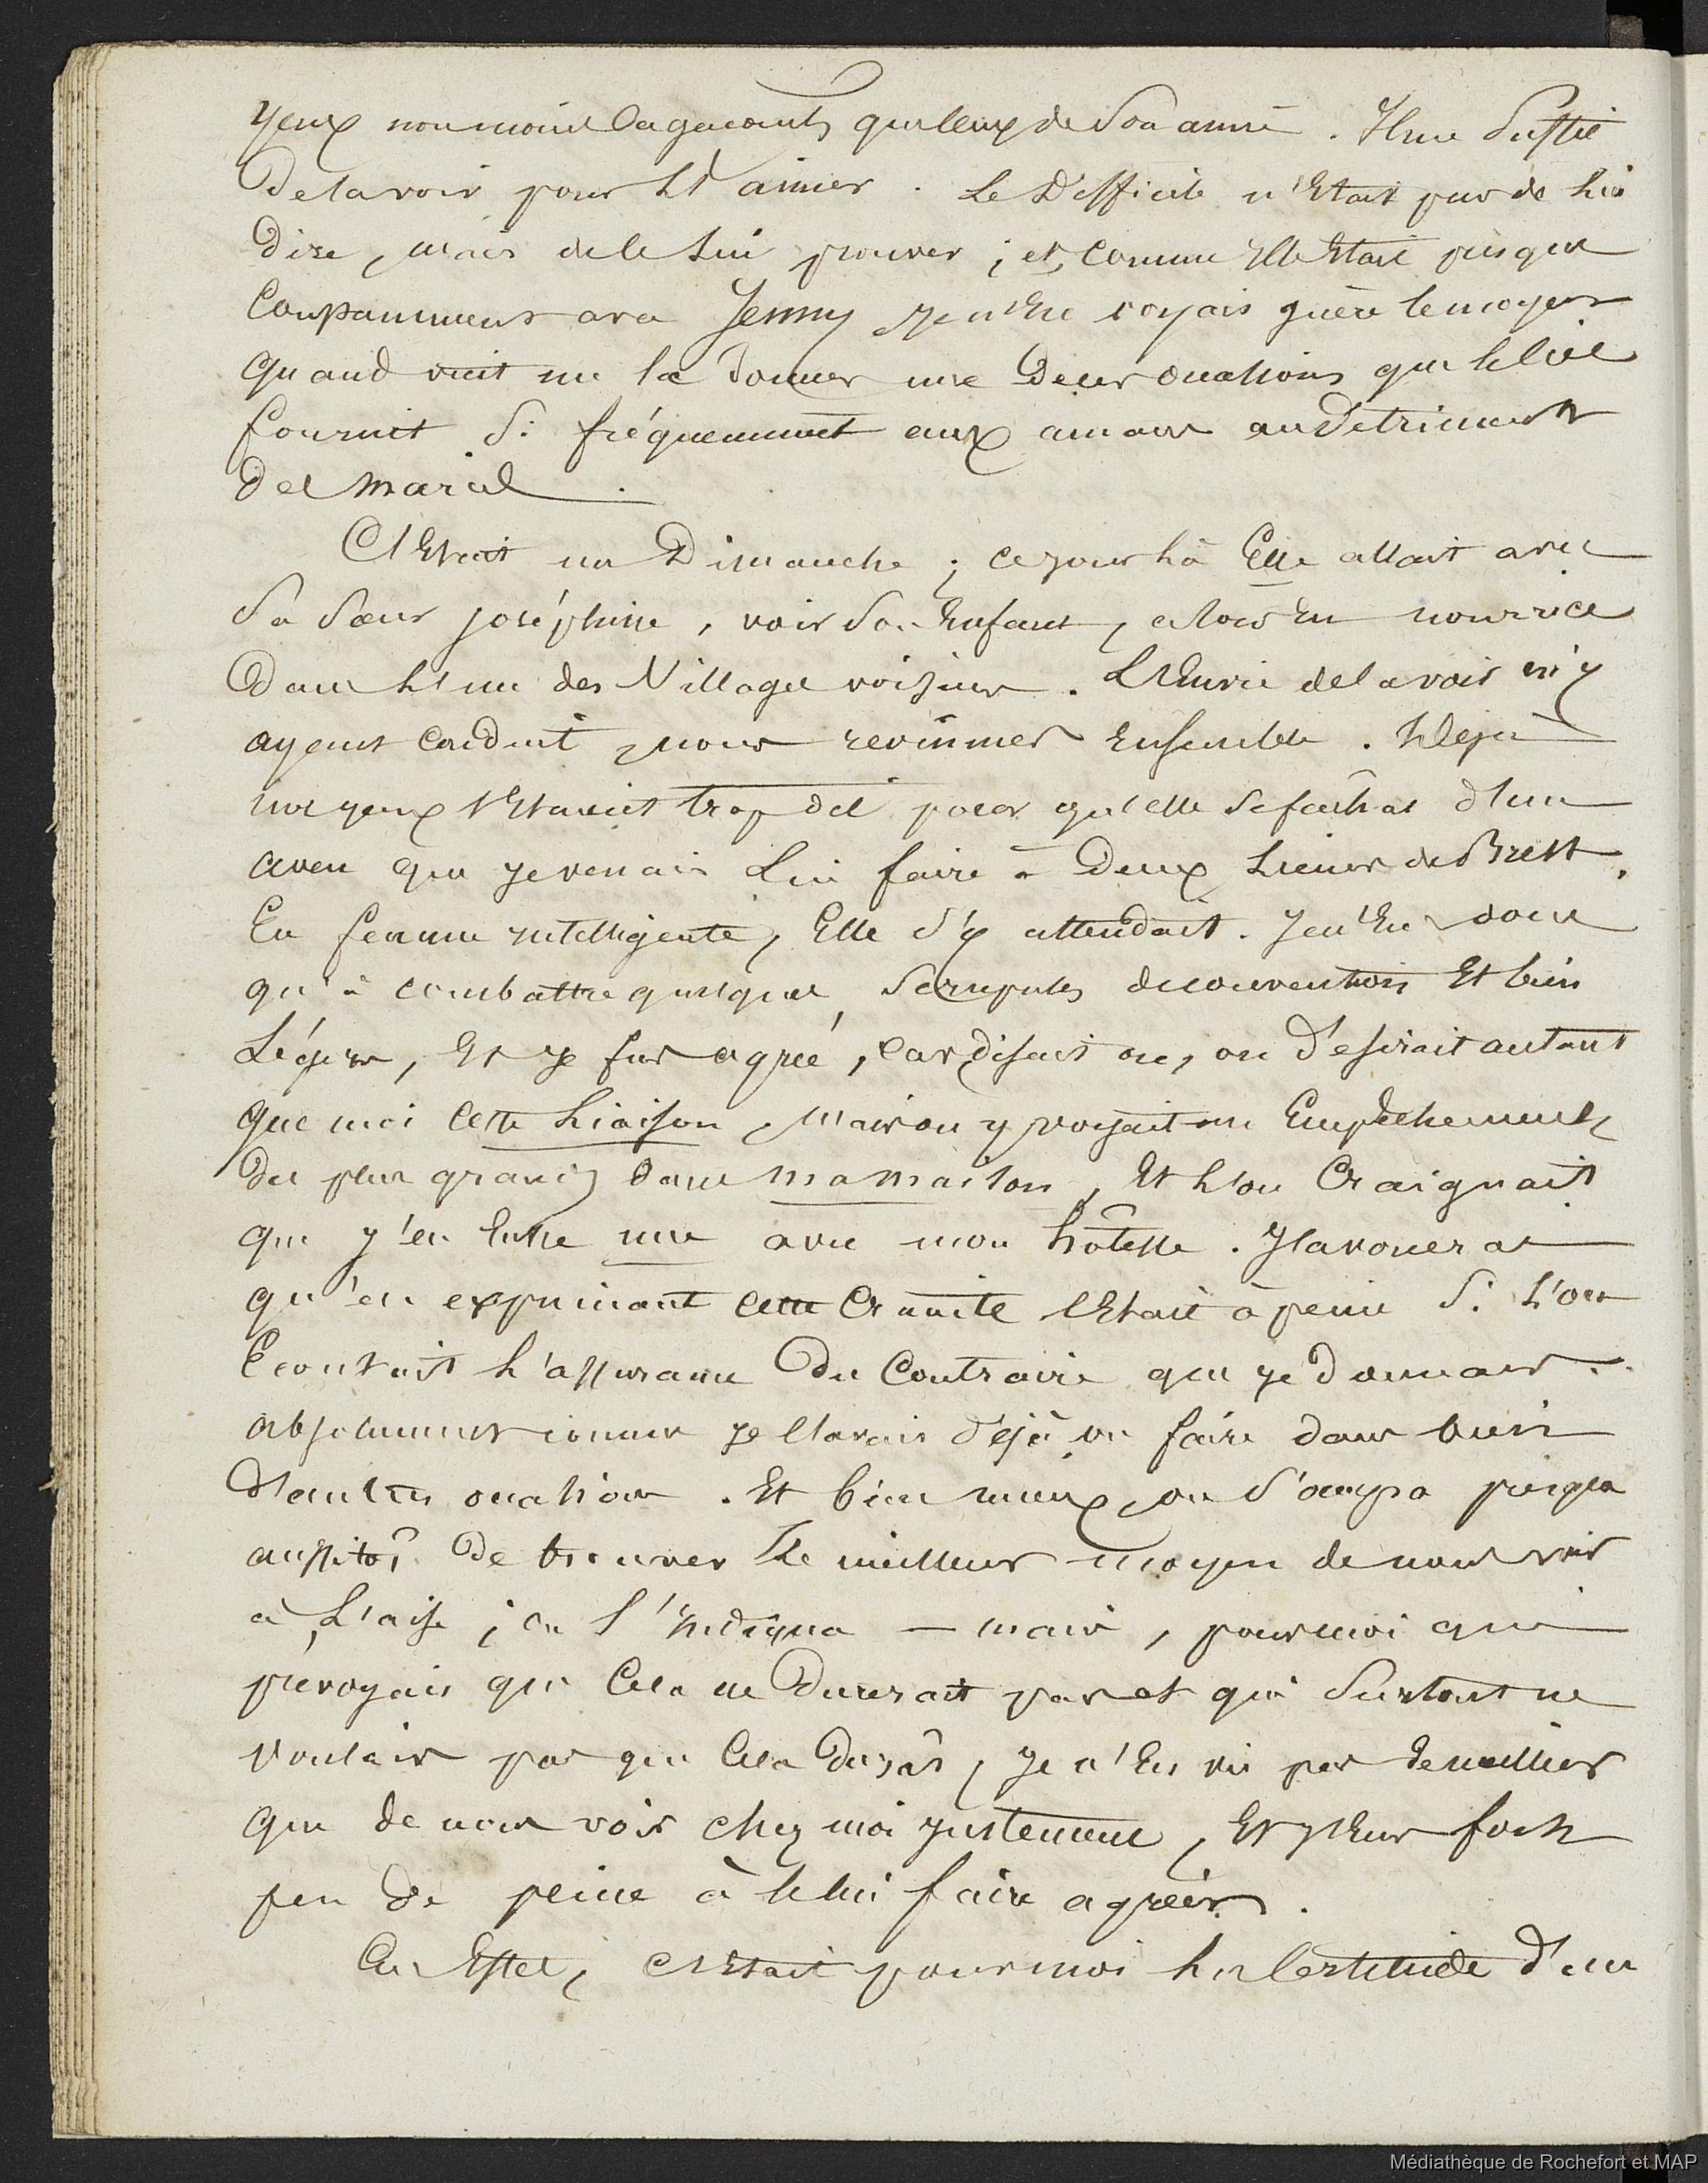 yeux non moins agacants que ceux de son amie. Il me suffit
de la voir pour l'aimer. Le difficile n'était pas de lui
dire, mais de le lui prouver; et, comme elle était presque
constamment avec Jenny je n'en voyais guère le moyen
quand vint me la donner une de ces occasions que le ciel
fournit si fréquemment aux amans au détriment
des maris.
C'était un Dimanche; ce jour là Elle allait avec
sa sœur joséphine, voir son Enfant, alors en nourrice
dans l'un des Villages voisins. L'Envie de la voir m'y
ayant conduit, nous revinmes Ensemble. Déjà
nos yeux s'étaient trop dit pour qu'elle se fachat d'un
aveu que je venais lui faire à deux lieues de Brest.
En femme intelligente, Elle s'y attendait. Je n'eus donc
qu'à combattre quelques scrupules de convention Et bien
légers, Et je fus agréé, car disait on, on désirait autant
que moi cette liaison, mais on y voyait un Empêchement
des plus graves dans ma maison, Et l'on craignait
que j'en eusse une avec mon hôtesse. J'avouerai
qu'en exprimant cette crainte c'était à peine si l'on
Ecoutait l'assurance du Contraire que je donnais.
absolument comme je l'avais déjà vu faire dans bien
d'autres occasions. Et bien mieux, on s'occupa presque
aussitôt de trouver le meilleur moyen de nous voir
à l'aise; on l'indiqua — mais, pour moi qui
prévoyais que Cela ne durerait pas et qui surtout ne
voulais pas que Cela durât, je n'en vis pas de meilleur
que de nous voir chez moi justement, Et j'eus fort
peu de peine à le lui faire agréer.
En Effet, c'était pour moi la Certitude d'en
Médiathèque de Rochefort et MAP